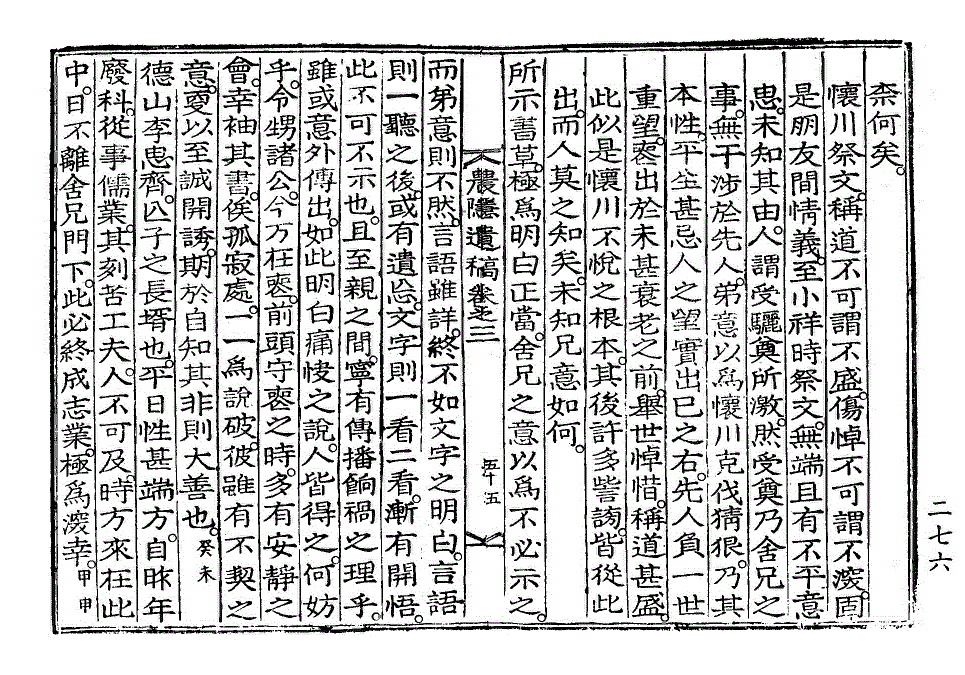 柰何矣。
懷川祭文。稱道不可謂不盛。傷悼不可謂不深。固
是朋友間情義。至小祥時祭文。無端且有不平意
思。未知其由。人謂受驪奠所激。然受奠乃舍兄之
事。無干涉於先人。弟意以爲懷川克伐猜狠。乃其
本性。平生甚忌人之望實出己之右。先人負一世
重望。喪出於未甚衰老之前。擧世悼惜。稱道甚盛。
此似是懷川不悅之根本。其後許多訾謗。皆從此
出。而人莫之知矣。未知兄意如何。
所示書草。極爲明白正當。舍兄之意以爲不必示之。
農隱遺稿卷之三
五十五
而弟意則不然。言語雖詳。終不如文字之明白。言語
則一聽之後。或有遺忘。文字則一看二看。漸有開悟。
此不可不示也。且至親之間。寧有傳播餉禍之理乎。
雖或意外傳出。如此明白痛快之說。人皆得之。何妨
乎。令甥諸公。今方在喪。前頭守喪之時。多有安靜之
會。幸袖其書。俟孤寂處。一一爲說破。彼雖有不契之
意。憂以至誠開誘。期於自知其非則大善也。癸未
德山李思齊。
子之長壻也。平日性甚端方。自昨年
廢科。從事儒業。其刻苦工夫。人不可及。時方來在此
中。日不離舍兄門下。此必終成志業。極爲深幸。甲申
二七六